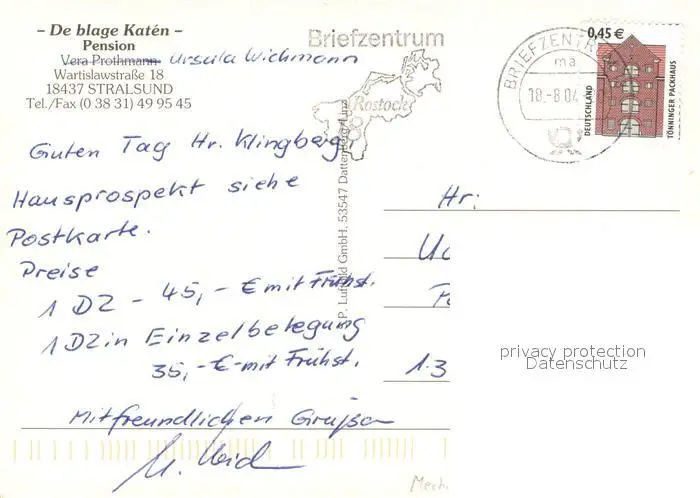 – De blage Katén –
Pension
Vera Prothmann Ursula Wichmann
Wartislawstraße 18
18437 STRALSUND
Tel./Fax (0 38 31) 49 95 45
Guten Tag Hr. Klingberg,
Hausprospekt siehe
Postkarte.
Preise
1 DZ - 45,- € mit Frühst.
1 DZ in Einzelbelegung
35,- € mit Frühst.
Mit freundlichen Grüßen
Briefzentrum
Rostock
18
53547 Dattenberg/Linz
BRIEFZENTRUM
ma
18.-8.04
0,45 €
DEUTSCHLAND
TÖNNINGER PACKHAUS
Hr:
13
privacy protection
Datenschutz